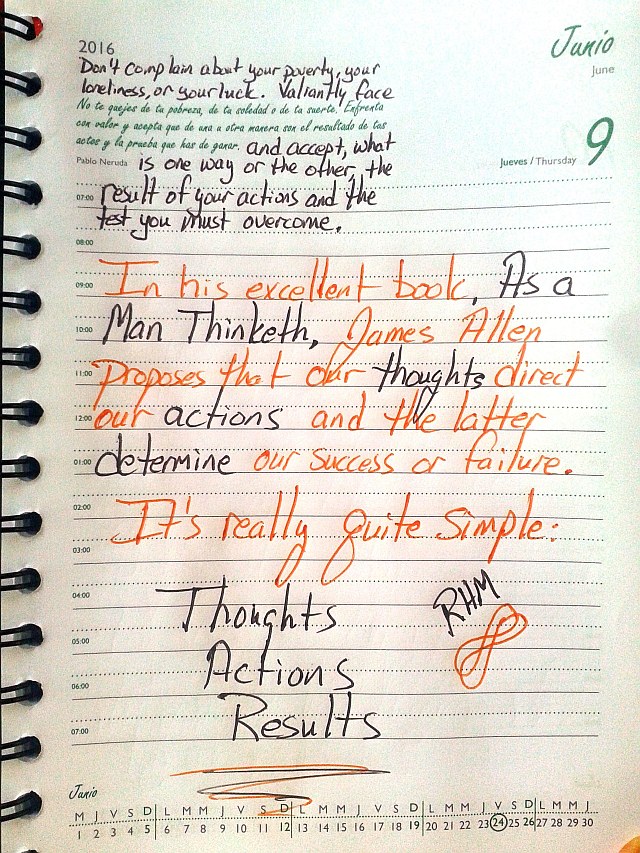 2016
Junio
June
Don't complain about your poverty, your
loneliness, or your luck. Valiantly face
No te quejes de tu pobreza, de tu soledad o de tu suerte. Enfrenta
con valor y acepta que de una u otra manera son el resultado de tus
actos y la prueba que has de ganar. and accept, what
Pablo Neruda is one way or the other, the
Jueves / Thursday 9
07:00 result of your actions and the
test you must overcome.
08:00
09:00 In his excellent book, As a
10:00 Man Thinketh, James Allen
11:00 proposes that our thoughts direct
12:00 our actions and the latter
01:00 determine our success or failure.
02:00 It's really quite simple:
03:00
04:00 Thoughts RHM
05:00
Actions
06:00
Results
07:00
Junio
M J V S D L M M J V S D L M M J V S D L M M J V S D L M M J
1 2 3 4 5 6 7 8 9 10 11 12 13 14 15 16 17 18 19 20 21 22 23 24 25 26 27 28 29 30